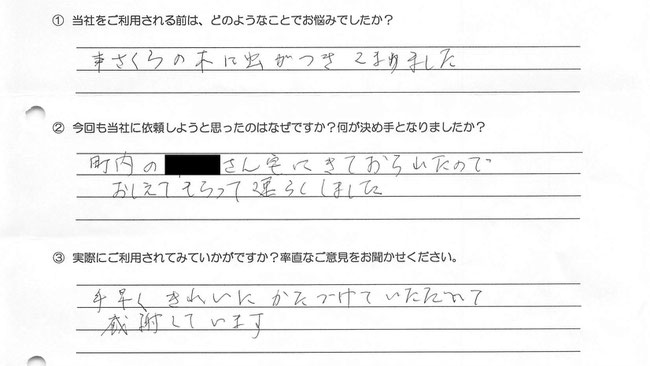 ① 当社をご利用される前は、どのようなことでお悩みでしたか?
さくらの木に虫がつき こまりました
② 今回も当社に依頼しようと思ったのはなぜですか?何が決め手となりましたか?
町内の さん宅にきておられたので
おしえてもらって しました
③ 実際にご利用されてみていかがですか?率直なご意見をお聞かせください。
手早く きれいに かたづけていただいて
感謝しています